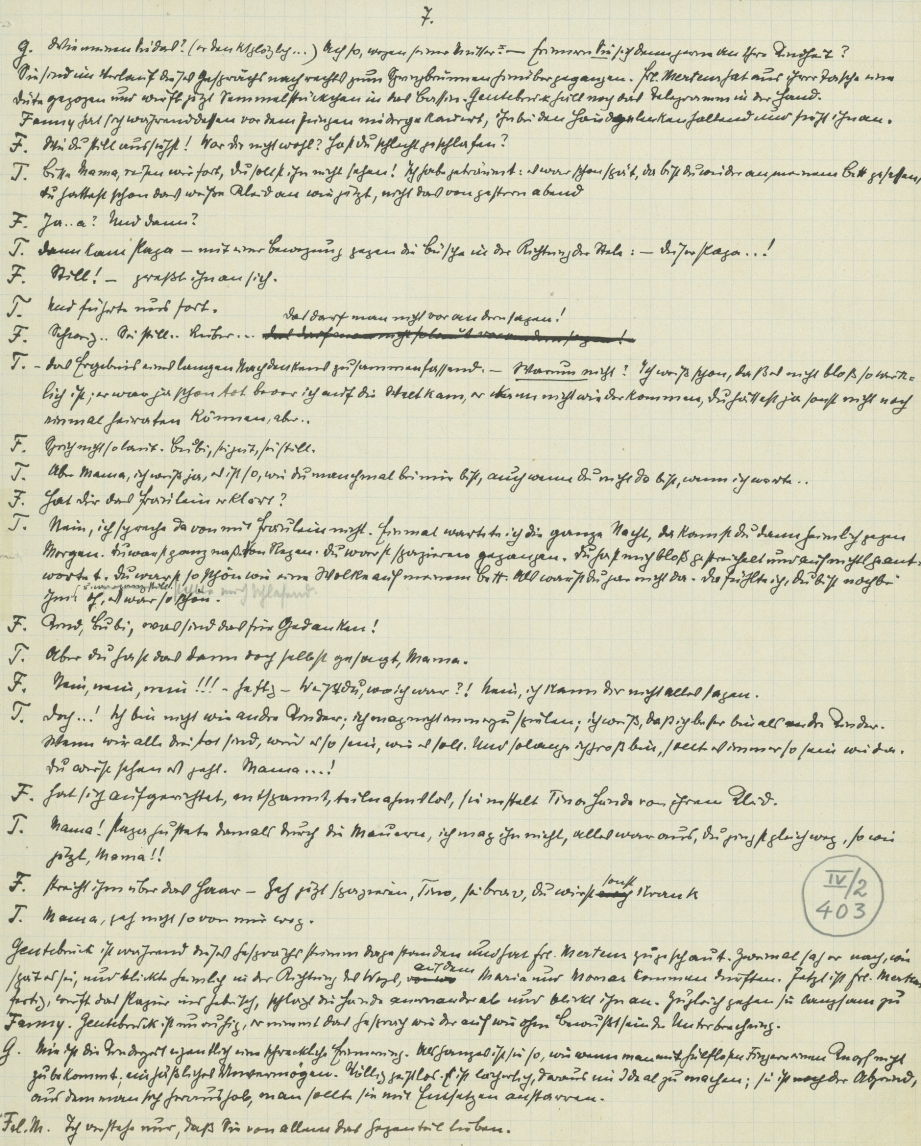 7.
G. Wie meinen Sie das? (er denkt plötzlich...) Ach so, wegen seiner Mutter? — Erinnern Sie sich denn gerne an Ihre Kindheit?
Sie sind im Verlauf dieses Gesprächs nach rechts zum Springbrunnen hinübergegangen. Frl. Mertens hat aus ihrer Tasche eine
Düte gezogen und wirft jetzt Semmelstückchen in das Bassin. Gentebrück hält noch das Telegramm in der Hand.
Fanny hat sich währenddessen vor dem Jungen niedergekauert, ihn bei den Handgelenken haltend und sieht ihn an.
F. Wie du still aussiehst! War dir nicht wohl? Hast du schlecht geschlafen?
T. Bitte Mama, reisen wir fort, du sollst ihn nicht sehen! Ich habe geträumt: es war schon spät, da bist du wieder an meinem Bett gesessen,
du hattest schon das weiße Kleid an wie jetzt, nicht das von gestern abend
F. Ja..a? Und dann?
T. dann kam Papa — mit einer Bewegung gegen die Büsche in der Richtung der Stele: — dieser Papa...!
F. Still! — preßt ihn an sich.
T. Und führte uns fort.
das darf man nicht vor andern sagen!
F. Schweig.. Sei still.. Lieber... das darf man nicht so laut vor andern sagen!
T. — das Ergebnis eines langen Nachdenkens zusammenfassend. — Warum nicht? Ich weiß schon, daß es nicht bloß so wirk-
lich ist; er war ja schon tot bevor ich auf die Welt kam, er kann nicht wiederkommen, du hättest ja sonst nicht noch
einmal heiraten können, aber..
F. Sprich nicht so laut. Bubi, sei gut, sei still.
T. Aber Mama, ich weiß ja, es ist so, wie du manchmal bei mir bist, auch wenn du nicht da bist, wenn ich warte..
F. Hat dir das Fräulein erklärt?
T. Nein, ich spreche davon mit Fräulein nicht. Einmal wartete ich die ganze Nacht, da kamst du dann heimlich gegen
Morgen. Du warst ganz naß von Regen. Du warst spazieren gegangen. Du hast mich bloß gestreichelt und auf nichts geant-
wortet. Du warst so schön wie eine Wolke auf meinem Bett. Als warst du gar nicht da. Da fühlte ich, du bist noch bei
ihm; oh, es war so schön.
F. Kind, Bubi, was sind das für Gedanken!
T. Aber du hast das dann doch selbst gesagt, Mama.
F. Nein, nein, nein!!! — heftig — Weißt du, wo ich war?! Nein, ich kann dir nicht alles sagen.
T. Doch...! Ich bin nicht wie andre Kinder; ich mag nicht immerzu spielen; ich weiß, daß ich besser bin als andre Kinder.
Wenn wir alle drei tot sind, wird es so sein, wie es soll. Und solange ich groß bin, sollt es immer so sein wie da.
Du wirst sehen es geht. Mama...!
F. hat sich aufgerichtet, entspannt, teilnahmslos, sie nestelt Tinos Hände von ihrem Kleid.
T. Mama! Papa hustete damals durch die Mauern, ich mag ihn nicht, alles war aus, du gingst gleich weg, so wie
jetzt, Mama!!
F. streicht ihm über das Haar — Geh jetzt spazieren, Tino, sei brav, du wirst sonst krank
T. Mama, geh nicht so von mir weg.
IV/2
403
Gentebrück ist während dieses Gesprächs stumm dagestanden und hat Frl. Mertens zugeschaut. Zweimal sah er nach, wie
spät es sei, und blickte heimlich in der Richtung des Wegs, auf dem Maria und Thomas kommen dürften. Jetzt ist Frl. Mertens
fertig, wirft das Papier ins Gebüsch, schlägt die Hände aneinander ab und blickt ihn an. Zugleich gehen sie langsam zu
Fanny. Gentebrück ist unruhig, er nimmt das Gespräch wieder auf wie ohne Bewußtsein der Unterbrechung.
G. Mir ist die Kinderzeit eigentlich eine schreckliche Erinnerung. Als Ganzes ist sie so, wie wenn man mit hülflosen Fingern einen Knopf nicht
zubekommt; ein häßliches Unvermögen. Völlig geistlos. Es ist lächerlich, daraus ein Ideal zu machen; sie ist der Abgrund,
aus dem man sich heraushob, man sollte sie mit Entsetzen anstarren.
Frl. M. Ich verstehe nur, daß Sie von allem das Gegenteil lieben.